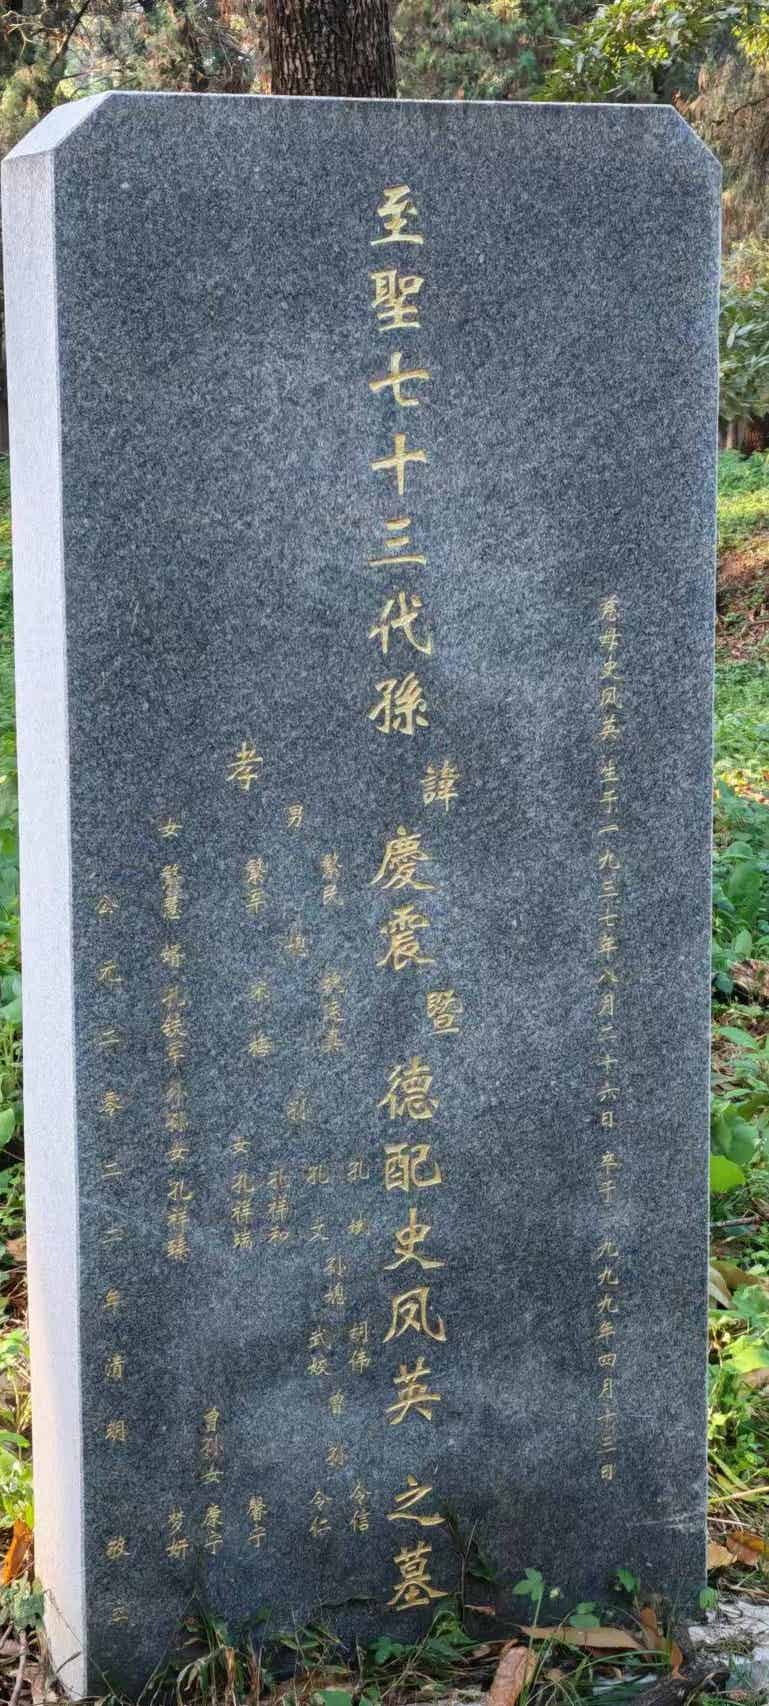 慈母史凤英 生于一九三七年八月二十六日 卒于一九九九年四月十三日
至聖七十三代孫 諱 慶震 暨 德配史凤英 之墓
孝
男 繁民 繁军
媳 宋梅
孙 孔斌 孔文 孔祥和
女 孔祥瑞
孙媳 胡伟 式姣
曾孙 令信 令仁
曾孙女 馨宁 康宁 梦妍
女 繁慧 婿 孔铁军 外孙女 孔祥臻
公元二零二六年清明 敬立